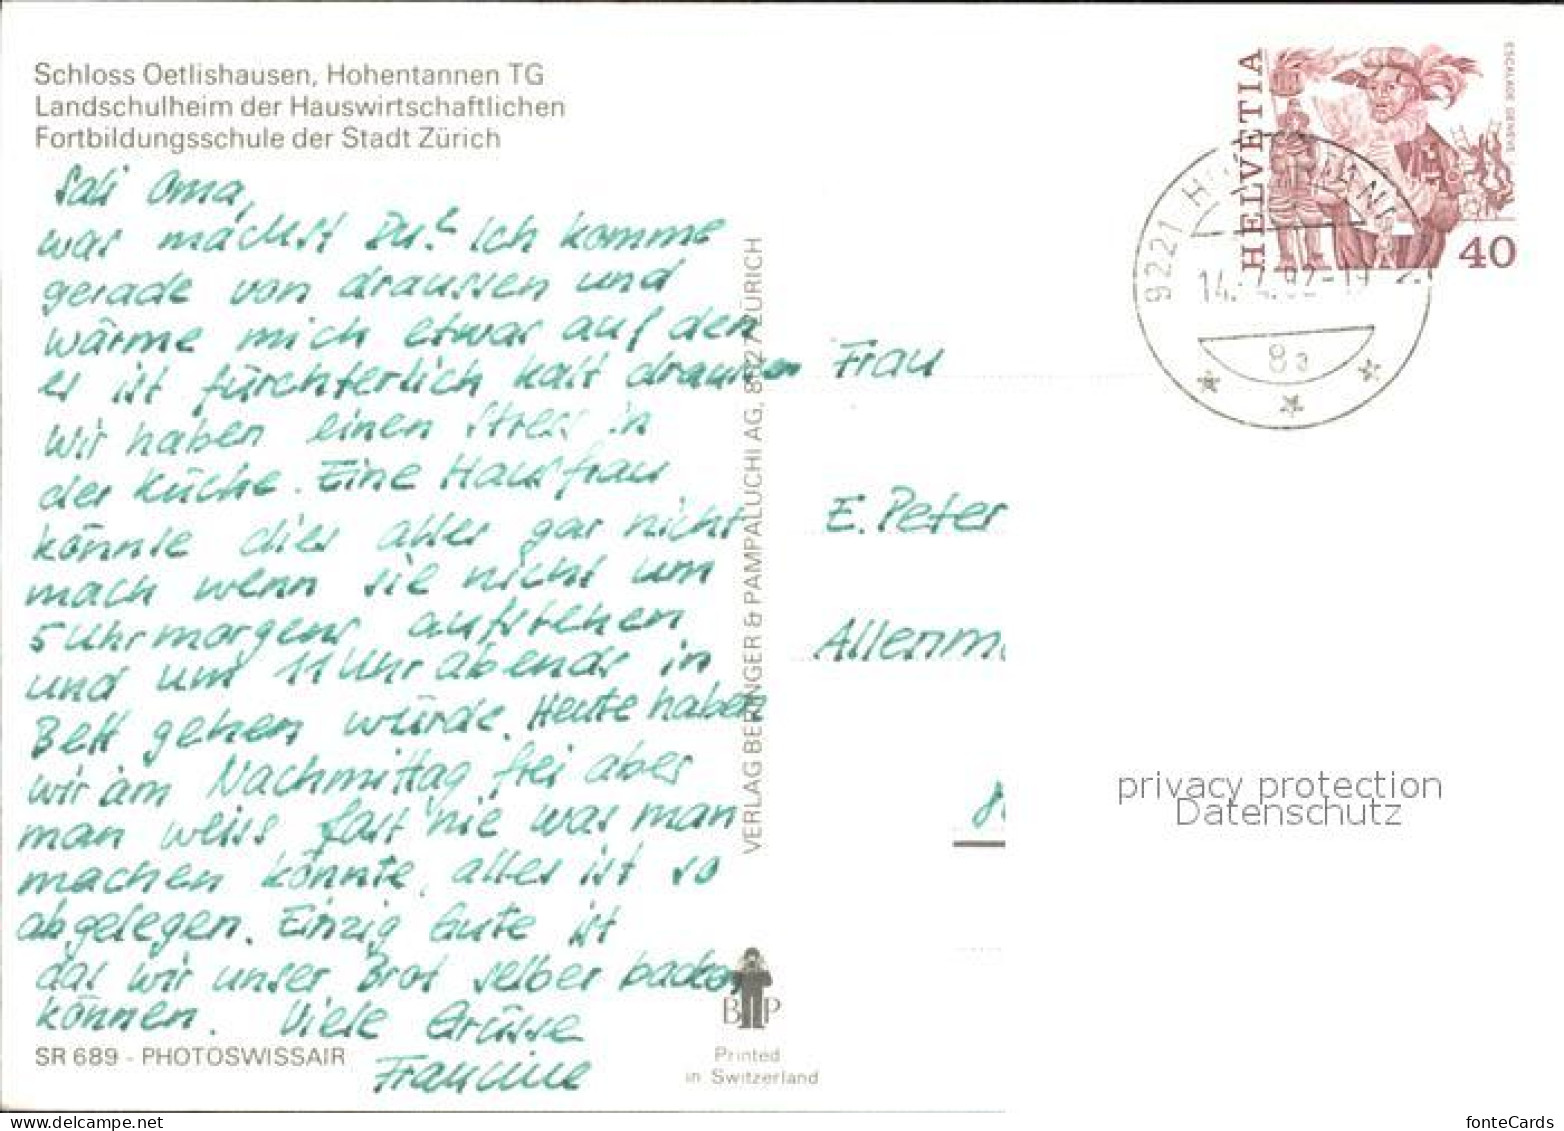 Schloss Oetlishausen, Hohentannen TG
Landschulheim der Hauswirtschaftlichen
Fortbildungsschule der Stadt Zürich
Sali Oma,
was machst Du? Ich komme
gerade von draussen und
wärme mich etwas auf den
es ist fürchterlich kalt draussen
wir haben einen Stress in
der Küche. Eine Hausfrau
könnte dies alles gar nicht
mach wenn sie nicht um
5 Uhr morgens aufstehen
und um 11 Uhr abends in
Bett gehen würde. Heute haben
wir am Nachmittag frei aber
man weiss fast nie was man
machen könnte, alles ist so
abgelegen. Einzig Gute ist
das wir unser Brot selber backen
können. Viele Grüsse
Francine
SR 689 - PHOTOSWISSAIR
VERLAG BERINGER & PAMPALUCHI AG, 8027 ZÜRICH
B P
Printed
in Switzerland
HELVETIA
ESCALADE GENÈVE
40
9221
14.
82-19
8a
Frau
E. Peter
Allenm
8
privacy protection
Datenschutz
fonteCards